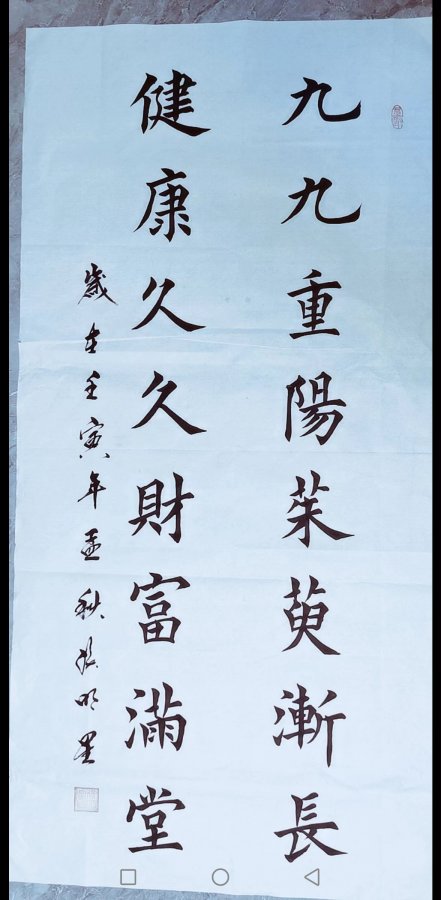 九九重陽茱萸漸長
健康久久財富滿堂
歲在壬寅年孟秋 明星